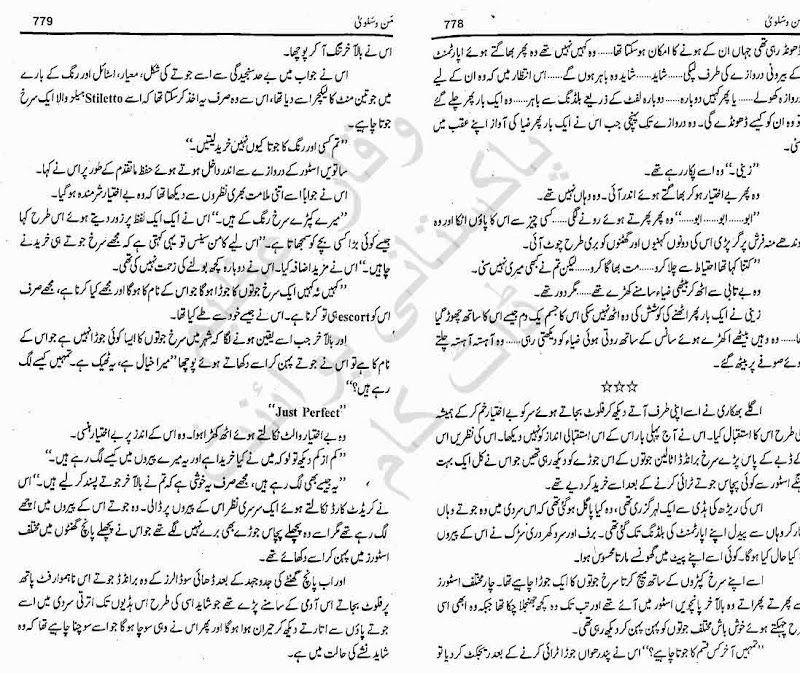 من و سلویٰ 778
ڈھونڈ رہی تھی جہاں ان کے ہونے کا امکان ہوسکتا تھا...... وہ کہیں نہیں تھے وہ پھر بھاگتے ہوئے اپارٹمنٹ
کے بیرونی دروازے کی طرف لپکی...... شاید...... شاید وہ باہر ہوں گے...... اس انتظار میں کہ وہ ان کے لیے
دروازہ کھولے...... یا پھر کہیں دوبارہ...... دوبارہ لفٹ کے ذریعے بلڈنگ سے باہر...... وہ ایک بار پھر چلے گئے
تو وہ ان کو کیسے ڈھونڈے گی۔ وہ دروازے تک پہنچی جب اس نے ایک بار پھر ضیا کی آواز اپنے عقب میں
سنی۔
”زینی۔“ وہ اسے پکار رہے تھے۔
وہ پھر بے اختیار ہوکر بھاگتے ہوئے اندر آئی۔ وہ وہاں نہیں تھے۔
”ابو...... ابو...... ابو......“ وہ پھر پھرتے ہوئے رونے لگی...... کسی چیز سے اس کا پاؤں اٹکا اور وہ
اوندھے منہ فرش پر گر پڑی اس کی دونوں کہنیوں اور گھٹنوں کو بری طرح چوٹ آئی۔
”کتنا کہا تھا احتیاط سے چلا کرو...... مت بھاگا کرو...... لیکن تم نے کبھی میری نہیں سنی۔
وہ بے تابی سے اٹھ کر بیٹھی ضیاء سامنے کھڑے تھے...... مگر دور تھے۔
زینی نے ایک بار پھر اٹھنے کی کوشش کی وہ اٹھ نہیں سکی اس کا جسم یک دم جیسے اس کا ساتھ چھوڑ گیا
تھا...... وہ وہیں بیٹھے اکھڑے ہوئے سانس کے ساتھ روتی ہوئی ضیاء کو دیکھتی رہی...... وہ آہستہ آہستہ چلتے
ہوئے صوفے پر بیٹھ گئے۔
☆☆☆
اگلے بھکاری نے اسے اپنی طرف آتے دیکھ کر فلوٹ بجاتے ہوئے سر کو بے اختیار خم کرکے ہمیشہ
کی طرح اس کا استقبال کیا۔ اس نے آج پہلی بار اس کے اس استقبالی انداز کو نہیں دیکھا۔ اس کی نظریں اس
کے ڈبے کے پاس پڑے سرخ برانڈڈ اٹالین جوتوں کے اس جوڑے کو دیکھ رہی تھیں جو اس نے کل ایک بہت
مہنگے اسٹور سے کوئی پچاس جوتے ٹرائی کرنے کے بعد اسے خرید کر دیے تھے۔
اس کی ریڑھ کی ہڈی سے ایک لہر گزری تھی، وہ کیا پاگل ہوگئی تھی کہ اس سردی میں وہ جوتے وہاں
اتار کر وہاں سے پیدل اپنے اپارٹمنٹ کی بلڈنگ تک گئی تھی۔ برف اور سرد کھردری سڑک نے اس کے پیروں
کا کیا حال کیا ہوگا۔ کوئی اسے اپنے پیٹ میں گھونسے مارتا محسوس ہوا۔
اسے اپنے سرخ کپڑوں کے ساتھ میچ کرتا سرخ جوتوں کا ایک جوڑا چاہیے تھا۔ چار مختلف اسٹورز
سے پھرتے پھراتے وہ بالآخر پانچویں اسٹور میں آئے تھے اور تب تک وہ کچھ جھنجلا چکا تھا جبکہ وہ ابھی اسی
طرح چہکتے ہوئے خوش باش مختلف جوتوں کو پہن پہن کر دیکھ رہی تھی۔
”تمہیں آخر کس قسم کا جوتا چاہیے؟“ اس نے پندرھواں جوڑا ٹرائی کرنے کے بعد ریجیکٹ کر دیا تو
من و سلویٰ 779
اس نے بالآخر تنگ آکر پوچھا۔
اس نے جواب میں بے حد سنجیدگی سے اسے جوتے کی شکل، معیار، اسٹائل اور رنگ کے بارے
میں جو تین منٹ کا لیکچر اسے دیا تھا، اس سے وہ صرف یہ اخذ کرسکتا تھا کہ اسے Stiletto ہیلو والا ایک سرخ
جوتا چاہیے۔
”تم کسی اور رنگ کا جوتا کیوں نہیں خرید لیتیں۔“
ساتویں اسٹور کے دروازے سے اندر داخل ہوتے ہوئے حفظ ماتقدم کے طور پر اس نے کہا۔
اس نے جواباً اسے اتنی ملامت بھری نظروں سے دیکھا تھا کہ وہ بے اختیار شرمندہ ہوگیا۔
”میرے کپڑے سرخ رنگ کے ہیں۔“ اس نے ایک ایک لفظ پر زور دیتے ہوئے اس طرح کہا
جیسے کوئی بڑا کسی بچے کو سمجھاتا ہے۔ ”اس لیے کامن سینس تو یہی کہتی ہے کہ مجھے سرخ جوتے ہی خریدنے
چاہیں۔“ اس نے مزید اضافہ کیا۔ اس نے دوبارہ کچھ بولنے کی زحمت نہیں کی تھی۔
”کہیں نہ کہیں ایک سرخ جوتوں کا جوڑا ہوگا جو اس کے نام کا ہوگا اور مجھے کیا کرنا ہے، مجھے صرف
اس کو escort ہی تو کرنا ہے۔ اس نے جیسے خود سے طے کیا تھا۔
اور بالآخر جب اسے یقین ہونے لگا کہ شہر میں سرخ جوتوں کا ایسا کوئی جوڑا نہیں ہے جو اس کے
نام کا ہے تو اس نے جوتے پہن کر اسے دکھاتے ہوئے پوچھا ”میرا خیال ہے، یہ ٹھیک ہے۔ تمہیں کیسے لگ
رہے ہیں؟“
”Just Perfect“
وہ بے اختیار والٹ نکالتے ہوئے اٹھ کھڑا ہوا۔ وہ اس کے انداز پر بے اختیار ہنسی۔
”کم از کم دیکھ تو لو کہ میں نے کیا خریدا ہے اور یہ میرے پیروں میں کیسے لگ رہے ہیں۔“
”یہ جیسے بھی لگ رہے ہیں، مجھے صرف یہ خوشی ہے کہ تم نے بالآخر جوتے پسند کر لیے ہیں۔“ اس
نے کریڈٹ کارڈ نکالتے ہوئے ایک سرسری نظر اس کے پیروں پر ڈالی۔ وہ جوتے اس کے پیروں میں اچھے
لگ رہے تھے مگر اسے وہ پچھلے پچاس جوڑے بھی برے نہیں لگے تھے جو اس نے پچھلے پانچ گھنٹوں میں مختلف
اسٹورز میں پہن کر اسے دکھائے تھے۔
اور اب پانچ گھنٹے کی جدوجہد کے بعد ڈھائی سو ڈالرز کے وہ برانڈڈ جوتے اس ناہموار فٹ پاتھ
پر فلوٹ بجاتے اس آدمی کے سامنے پڑے تھے جو شاید اسی کی طرح اس ہڈیوں تک اترتی سردی میں اسے
جوتے پاؤں سے اتارتے دیکھ کر حیران ہوا ہوگا اور پھر اس نے وہی سوچا ہوگا جو اسے سوچنا چاہیے تھا کہ وہ
شاید نشے کی حالت میں ہے۔